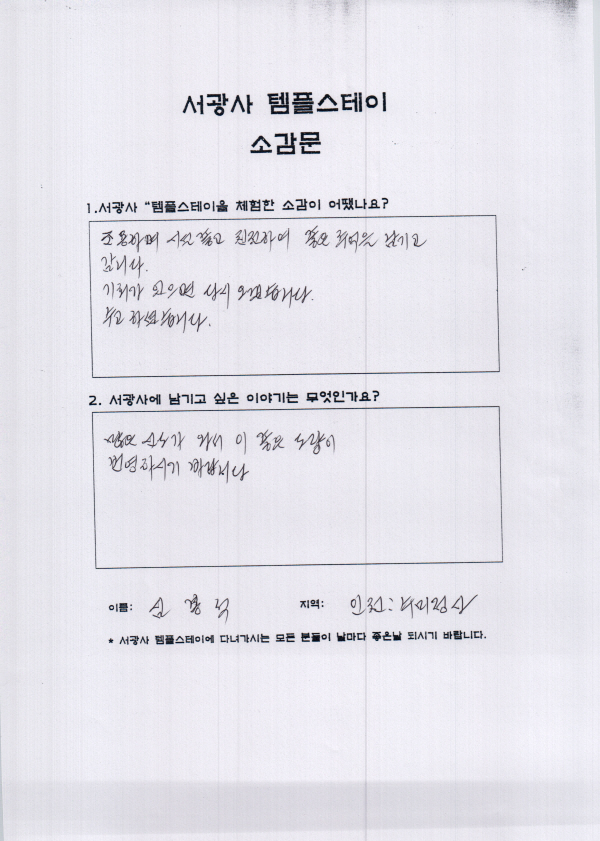 서광사 템플스테이
소감문
1.서광사 “템플스테이를 체험한 소감이 어땠나요?
조용하며 시설 좋고 친절하여 좋은 추억을 남기고
갑니다.
기회가 있으면 다시 오겠습니다.
수고하셨습니다.
2. 서광사에 남기고 싶은 이야기는 무엇인가요?
많은 신도가 와서 이 좋은 도량이
번영하시기 바랍니다
이름: 심
지역: 인천: 수미정사
* 서광사 템플스테이에 다녀가시는 모든 분들이 날마다 좋은날 되시기 바랍니다.